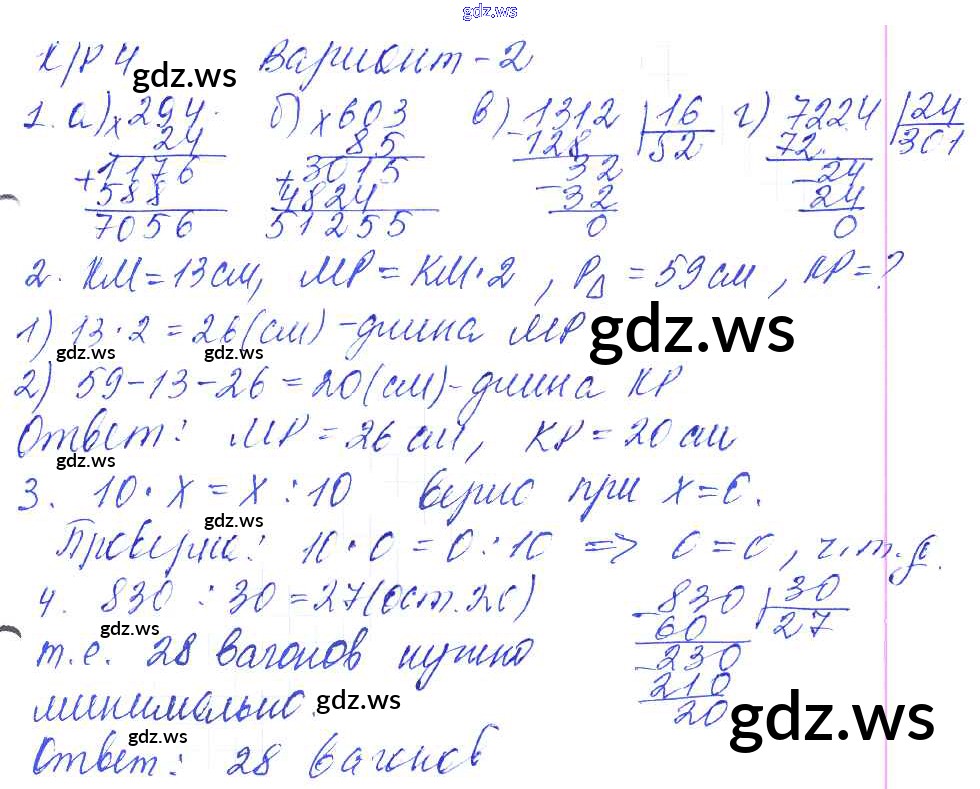 gdz.ws
К/Р 4 Вариант - 2
gdz.ws
1. а) × 294 б) × 603 в) - 1312 | 16 г) 7224 | 24
24 85 128 52 72 301
+ 1176 + 3015 - 32 - 24
588 4824 32 24
7056 51255 0 0
2. КМ = 13 см, МР = КМ · 2, P△ = 59 см, КР = ?
1) 13 · 2 = 26 (см) - длина МР
gdz.ws
gdz.ws gdz.ws
2) 59 - 13 - 26 = 20 (см) - длина КР
Ответ: МР = 26 см, КР = 20 см
gdz.ws
3. 10 · х = х : 10 верно при х = 0.
gdz.ws
Проверка: 10 · 0 = 0 : 10 => 0 = 0, ч.т.д.
4. 830 : 30 = 27 (ост. 20) - 830 | 30
gdz.ws
60 27
т.е. 28 вагонов нужно - 230
210
минимально. 20
gdz.ws
gdz.ws
gdz.ws
Ответ: 28 вагонов